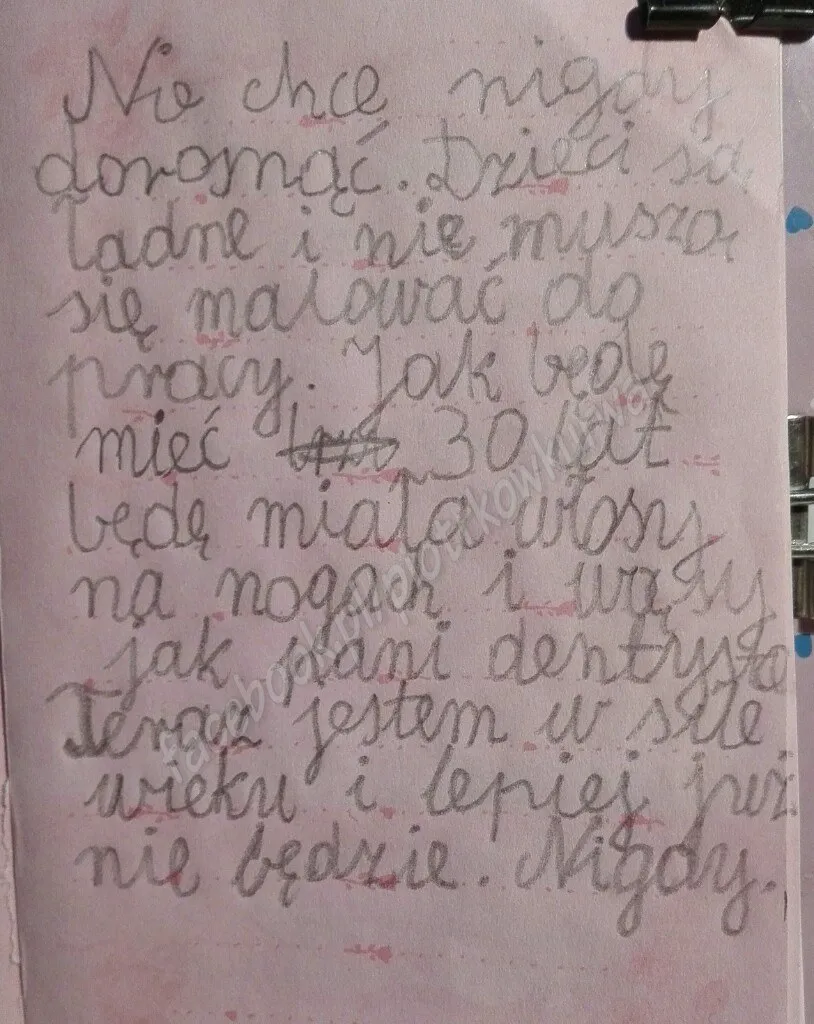 Nie chcę nigdy
dorosnąć. Dzieci są
ładne i nie muszą
się malować do
pracy. Jak będę
mieć 30 lat
będę miała włosy
na nogach i wąsy
jak pani dentysta
Teraz jestem w sile
wieku i lepiej już
nie będzie. Nigdy.
facebook.pl/piotrkowkufwa